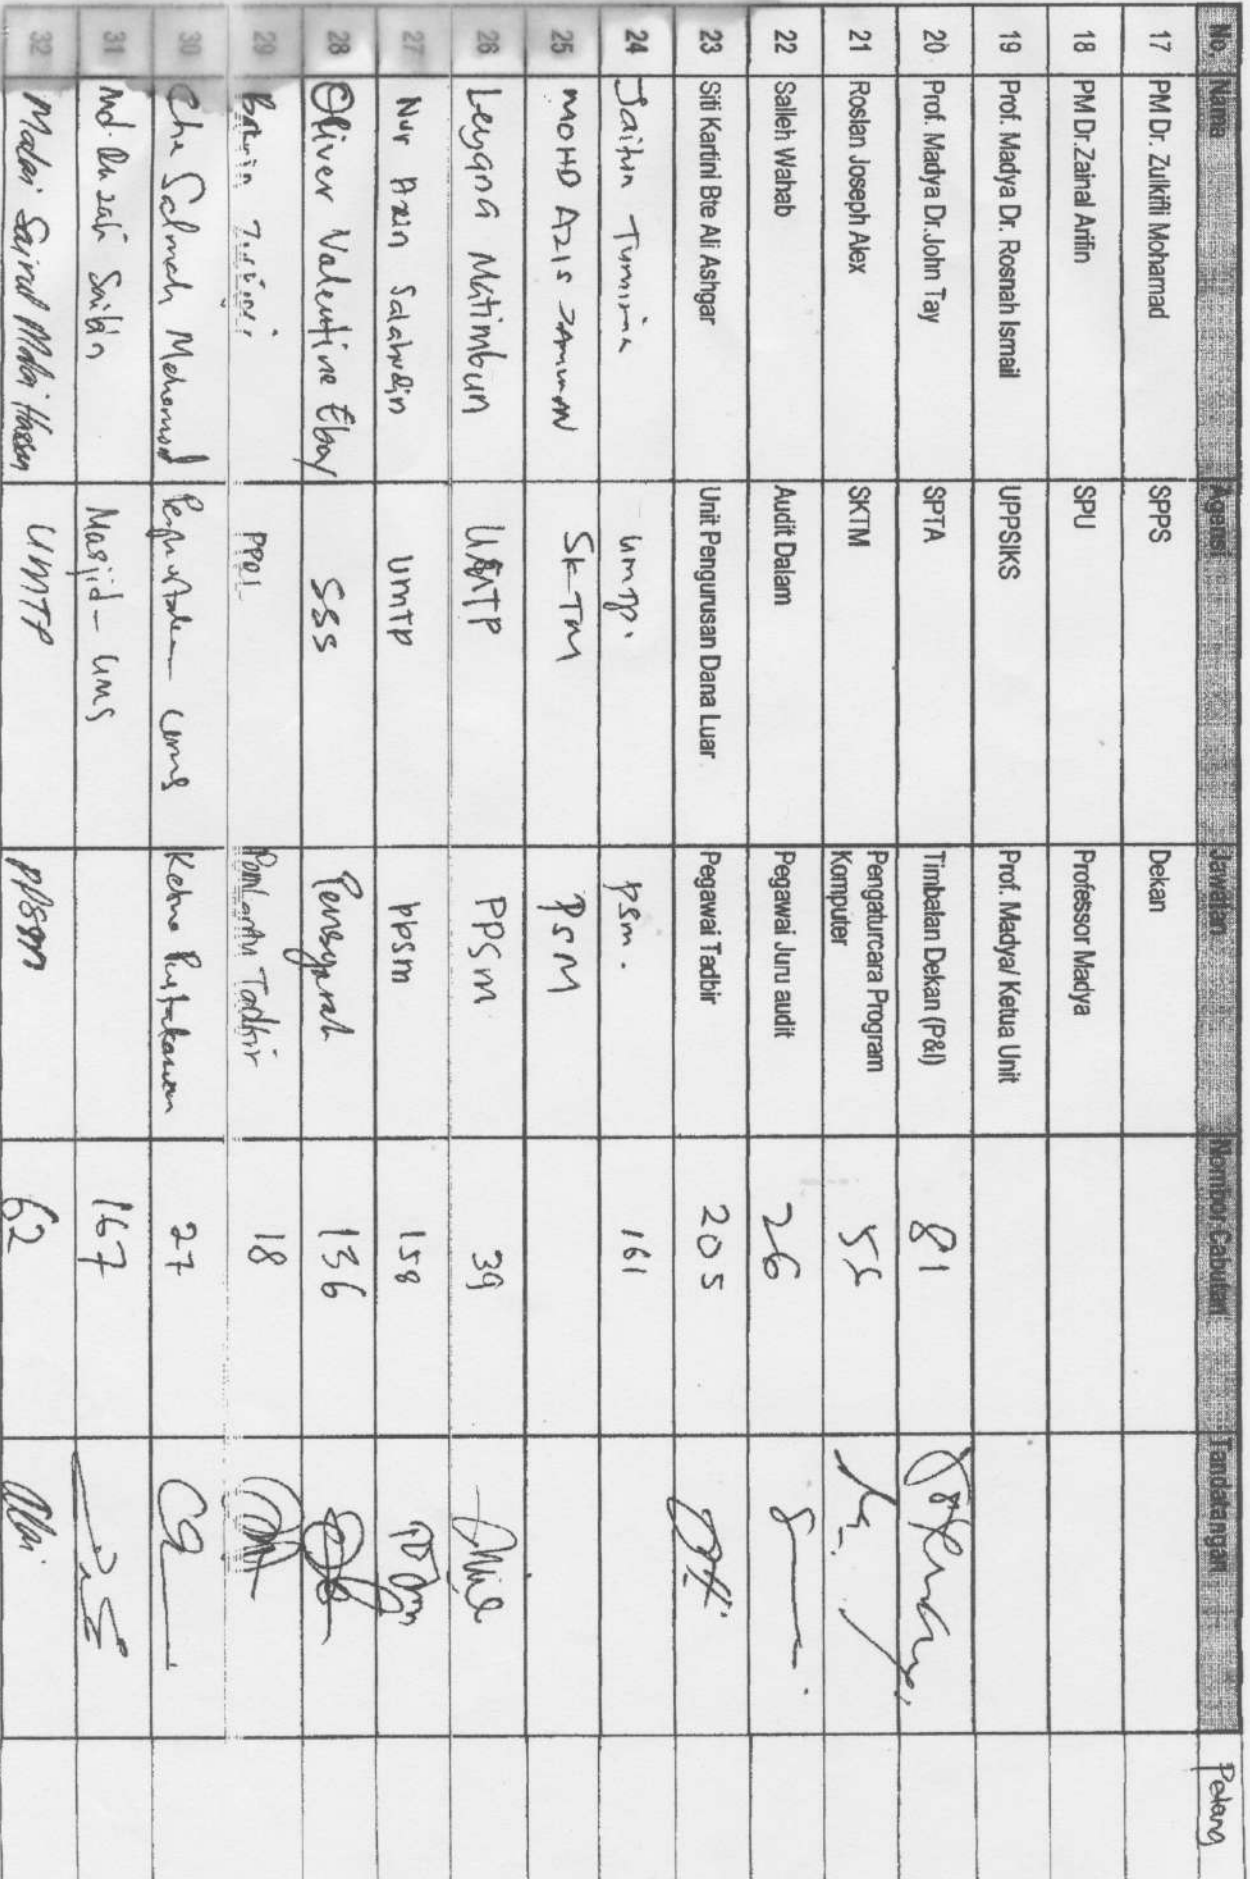 No. Nama Agensi Jawatan Nombor Cabutan Tandatangan Petang
17 PM Dr. Zulkifli Mohamad SPPS Dekan
18 PM Dr.Zainal Arifin SPU Professor Madya
19 Prof. Madya Dr. Rosnah Ismail UPPSIKS Prof. Madya/ Ketua Unit
20 Prof. Madya Dr.John Tay SPTA Timbalan Dekan (P&I) 81
21 Roslan Joseph Alex SKTM Pengaturcara Program
Komputer 55
22 Salleh Wahab Audit Dalam Pegawai Juru audit 26
23 Siti Kartini Bte Ali Ashgar Unit Pengurusan Dana Luar Pegawai Tadbir 205
24 Jaitun umtp. psm. 161
25 MOHD AZIS JAMUMN SKTM PSM
26 Leyana Matimbun UMTP PPSM 39
27 Nur Azin Salahudin UMTP ppsm 158
28 Oliver Valentine Eboy SSS Pensyarah 136
29 PPPI Tadbir 18
30 Che Salmah Mehamood Perpustakaan UMS Ketua Pustakawan 27
31 Md. Masjid - UMS 167
32 Malai Sairul Malai Hassan UMTP PPSM 62